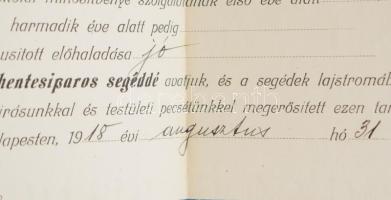 harmadik éve alatt pedig
usitott előhaladása jó
hentesiparos segéddé avatjuk, és a segédek lajstromáb
irásunkkal és testületi pecsétünkkel megerősitett ezen tan
dapesten, 1918 évi augusztus hó 31